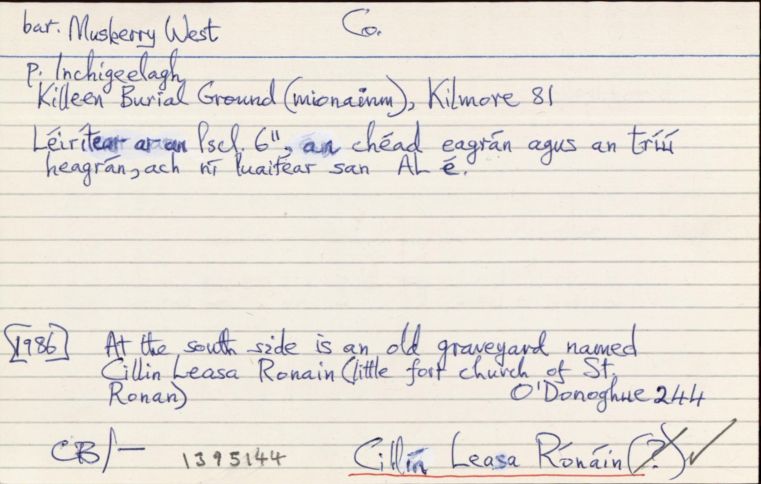 bar. Muskerry West Co.
p. Inchigeelagh
Killeen Burial Ground (mionainm), Kilmore 81
Léirítear ar an lscl. 6", an chéad eagrán agus an tríú
heagrán, ach ní luaitear san AL é.
[1986] At the south side is an old graveyard named
Cillin Leasa Ronain (little fort church of St.
Ronan) O'Donoghue 244
CB/— 1395144 Cillín Leasa Rónáin (?) ✓